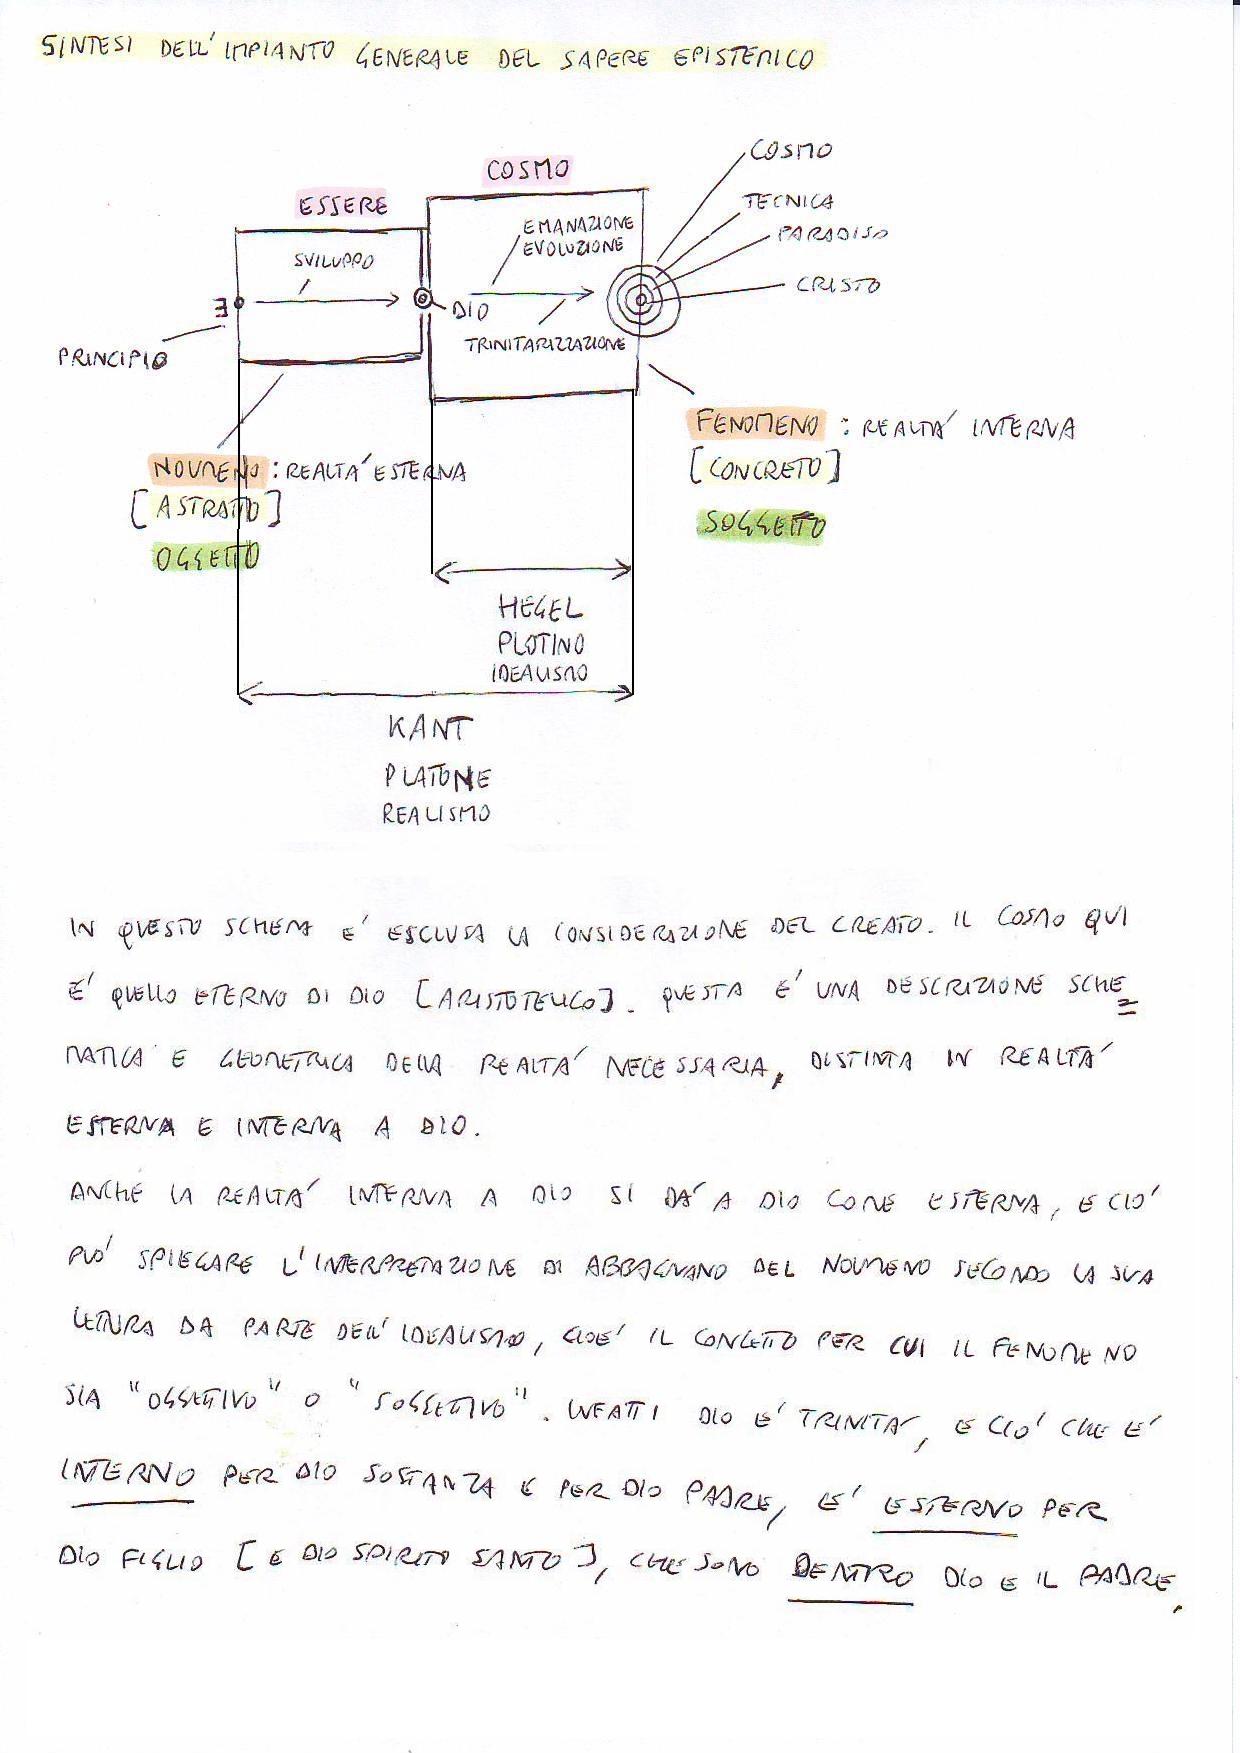 SINTESI DELL'IMPIANTO GENERALE DEL SAPERE EPISTEMICO
COSMO
COSMO
TECNICA
ESSERE
EMANAZIONE
EVOLUZIONE
PARADISO
SVILUPPO
CRISTO
∃
DIO
TRINITARIZZAZIONE
PRINCIPIO
FENOMENO : REALTA' INTERNA
[CONCRETO]
NOUMENO : REALTA' ESTERNA
[ASTRATTO]
SOGGETTO
OGGETTO
HEGEL
PLOTINO
IDEALISMO
KANT
PLATONE
REALISMO
IN QUESTO SCHEMA E' ESCLUSA LA CONSIDERAZIONE DEL CREATO. IL COSMO QUI
E' QUELLO ETERNO DI DIO [ARISTOTELICO]. QUESTA E' UNA DESCRIZIONE SCHE=
MATICA E GEOMETRICA DELLA REALTA' NECESSARIA, DISTINTA IN REALTA'
ESTERNA E INTERNA A DIO.
ANCHE LA REALTA' INTERNA A DIO SI DA' A DIO COME ESTERNA, E CIO'
PUO' SPIEGARE L'INTERPRETAZIONE DI ABBAGNANO DEL NOUMENO SECONDO LA SUA
LETTURA DA PARTE DELL'IDEALISMO, CIOE' IL CONCETTO PER CUI IL FENOMENO
SIA "OGGETTIVO" O "SOGGETTIVO". INFATTI DIO E' TRINITA', E CIO' CHE E'
INTERNO PER DIO SOSTANZA E PER DIO PADRE, E' ESTERNO PER
DIO FIGLIO [E DIO SPIRITO SANTO], CHE SONO DENTRO DIO E IL PADRE.